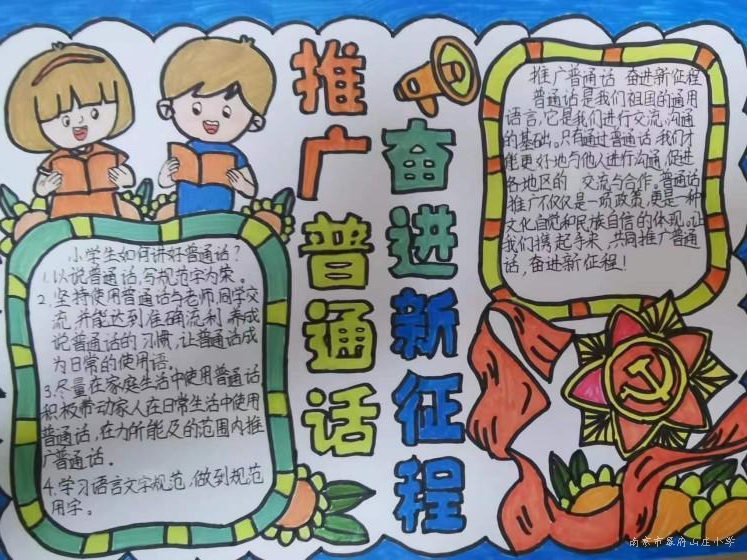 推广普通话
奋进新征程
推广普通话 奋进新征程
普通话是我们祖国的通用
语言,它是我们进行交流,沟通
的基础。只有通过普通话,我们才
能更好地与他人进行沟通,促进
各地区的 交流与合作。普通话
推广不仅仅是一项政策,更是一种
文化自觉和民族自信的体现。让
我们携起手来,共同推广普通
话,奋进新征程!
小学生如何讲好普通话?
1.以说普通话,写规范字为荣。
2.坚持使用普通话与老师,同学交
流,并能达到准确流利 养成
说普通话的习惯,让普通话成
为日常的使用语。
3.尽量在家庭生活中使用普通话
积极带动家人在日常生活中使用
普通话,在力所能及的范围内推
广普通话。
4.学习语言文字规范,做到规范
用字。